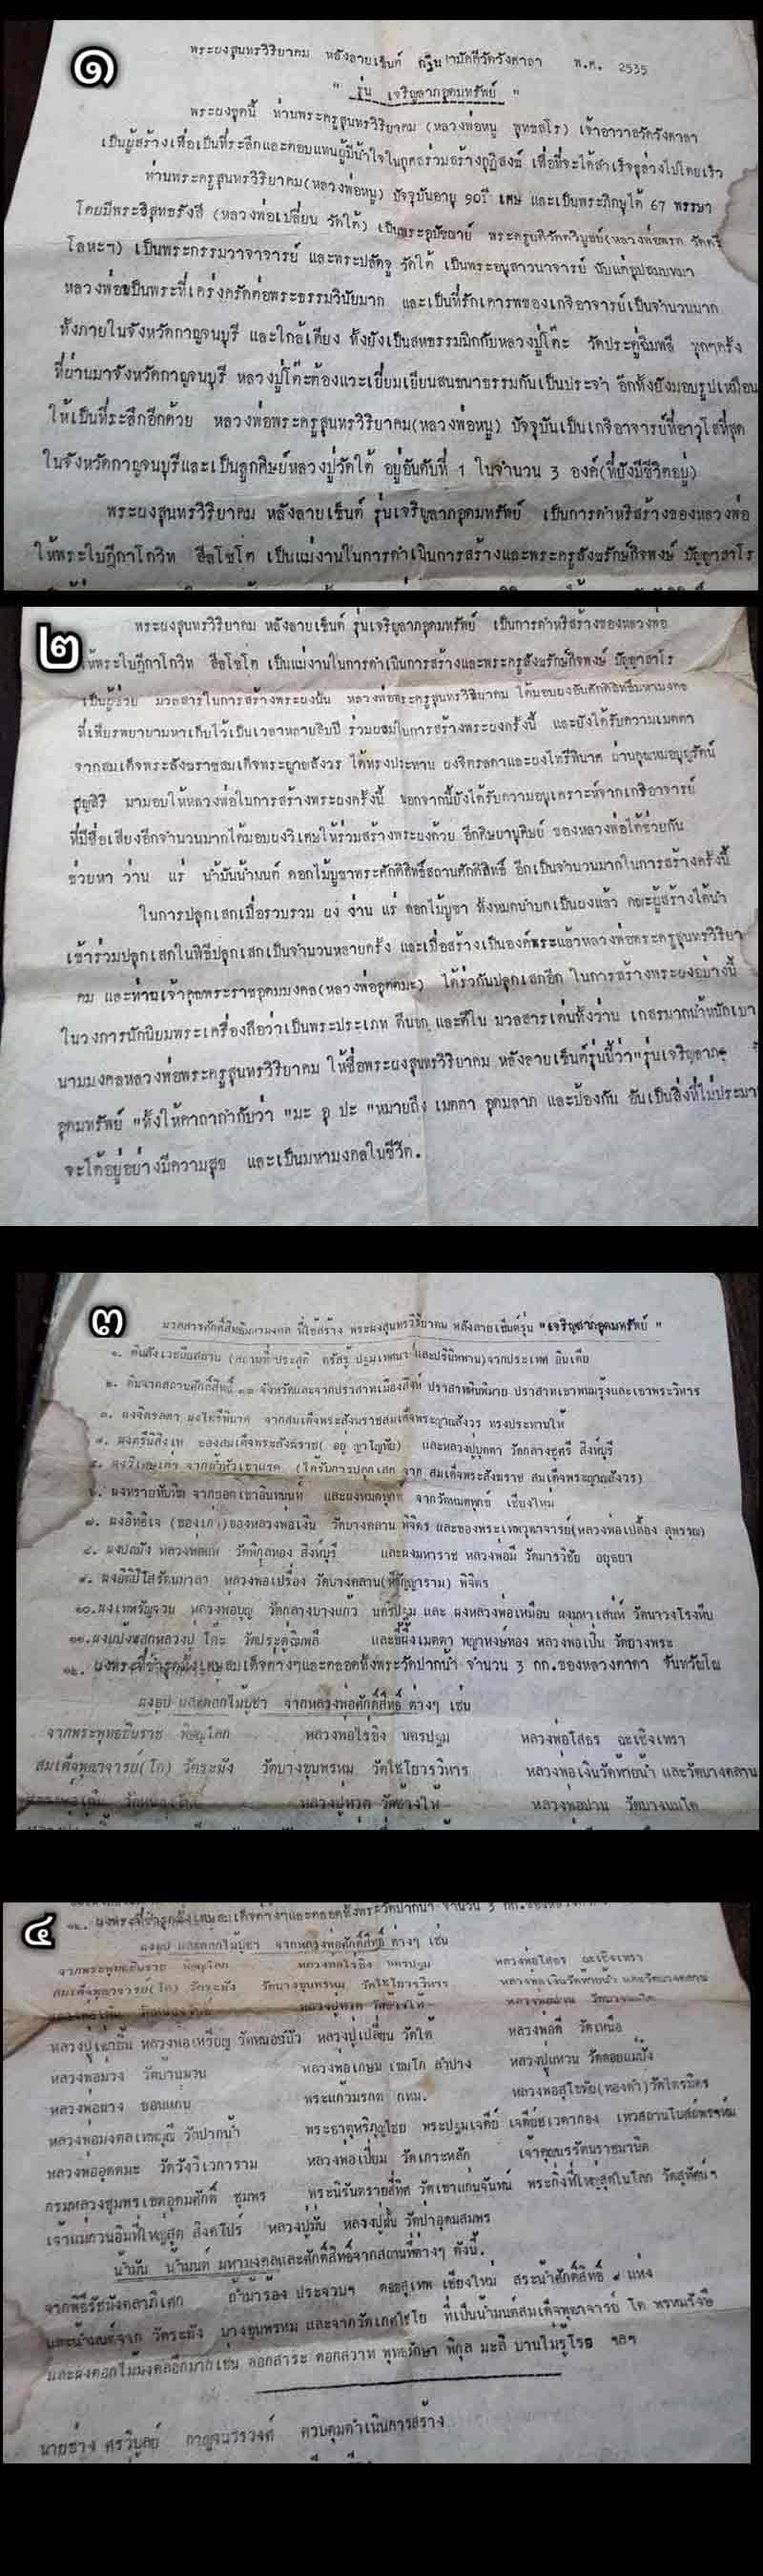 ๑
พระผงสุนทรวิริยาคม หลังลายเซ็นต์ กฐินสามัคคีวัดวังศาลา พ.ศ. 2535
" รุ่น เจริญลาภอุดมทรัพย์ "
พระผงชุดนี้ ท่านพระครูสุนทรวิริยาคม (หลวงพ่อหนู พุทธสโร) เจ้าอาวาสวัดวังศาลา
เป็นผู้สร้างเพื่อเป็นที่ระลึกและตอบแทนผู้มีน้ำใจในกุศลร่วมสร้างกุฏิสงฆ์ เพื่อที่จะได้สำเร็จลุล่วงไปโดยเร็ว
ท่านพระครูสุนทรวิริยาคม(หลวงพ่อหนู) ปัจจุบันอายุ 90ปี เศษ และเป็นพระภิกษุได้ 67 พรรษา
โดยมีพระวิสุทธรังสี (หลวงพ่อเปลี่ยน วัดใต้) เป็นพระอุปัชฌาย์
โลหะฯ) เป็นพระกรรมวาจาจารย์ และพระปลัดจู วัดใต้ เป็นพระอนุสาวนาจารย์ นับแต่อุปสมบทมา
หลวงพ่อเป็นพระที่เคร่งครัดต่อพระธรรมวินัยมาก และเป็นที่รักเคารพของเกจิอาจารย์เป็นจำนวนมาก
ทั้งภายในจังหวัดกาญจนบุรี และใกล้เคียง ทั้งยังเป็นสหธรรมมิกกับหลวงปู่โต๊ะ วัดประดู่ฉิมพลี ทุกๆครั้ง
ที่ผ่านมาจังหวัดกาญจนบุรี หลวงปู่โต๊ะต้องแวะเยี่ยมเยียนสนทนาธรรมกันเป็นประจำ อีกทั้งยังมอบรูปเหมือน
ให้เป็นที่ระลึกอีกด้วย หลวงพ่อพระครูสุนทรวิริยาคม(หลวงพ่อหนู) ปัจจุบันเป็นเกจิอาจารย์ที่อาวุโสที่สุด
ในจังหวัดกาญจนบุรีและเป็นลูกศิษย์หลวงปู่วัดใต้ อยู่อันดับที่ 1 ในจำนวน 3 องค์(ที่ยังมีชีวิตอยู่)
พระผงสุนทรวิริยาคม หลังลายเซ็นต์ รุ่นเจริญลาภอุดมทรัพย์ เป็นการดำหริสร้างของหลวงพ่อ
ให้พระใบฎีกาโกวิท สีลโชโต เป็นแม่งานในการดำเนินการสร้างและพระครูสังฆรักษ์กิจพงษ์ ปัญญาสาโร
๒
พระผงสุนทรวิริยาคม หลังลายเซ็นต์ รุ่นเจริญลาภอุดมทรัพย์ เป็นการดำหริสร้างของหลวงพ่อ
ให้พระใบฎีกาโกวิท สีลโชโต เป็นแม่งานในการดำเนินการสร้างและพระครูสังฆรักษ์กิจพงษ์ ปัญญาสาโร
เป็นผู้ช่วย มวลสารในการสร้างพระผงนั้น หลวงพ่อพระครูสุนทรวิริยาคม ได้มอบผงอันศักดิ์สิทธิ์มหามงคล
ที่เพียรพยายามหาเก็บไว้เป็นเวลาหลายสิบปี ร่วมผสมในการสร้างพระผงครั้งนี้ และยังได้รับความเมตตา
จากสมเด็จพระสังฆราชสมเด็จพระญาณสังวร ได้ทรงประทาน ผงจิตรลดาและผงไพรีพินาศ ผ่านคุณหมออนุญรัตน์
มามอบให้หลวงพ่อในการสร้างพระผงครั้งนี้ นอกจากนี้ยังได้รับความอนุเคราะห์จากเกจิอาจารย์
ที่มีชื่อเสียงอีกจำนวนมากได้มอบผงวิเศษให้ร่วมสร้างพระผงด้วย อีกศิษยานุศิษย์ ของหลวงพ่อได้ช่วยกัน
ช่วยหา ว่าน แร่ น้ำมันน้ำมนต์ ดอกไม้บูชาพระศักดิ์สิทธิ์สถานศักดิ์สิทธิ์ อีกเป็นจำนวนมากในการสร้างครั้งนี้
ในการปลุกเสกเมื่อรวบรวม ผง ว่าน แร่ ดอกไม้บูชา ทั้งหมดนำบดเป็นผงแล้ว คณะผู้สร้างได้นำ
เข้าร่วมปลุกเสกในพิธีปลุกเสกเป็นจำนวนหลายครั้ง และเมื่อสร้างเป็นองค์พระแล้วหลวงพ่อพระครูสุนทรวิริยา
คม และท่านเจ้าคุณพระราชอุดมมงคล(หลวงพ่ออุตตมะ) ได้ร่วกันปลุกเสกอีก ในการสร้างพระผงอย่างนี้
ในวงการนักนิยมพระเครื่องถือว่าเป็นพระประเภท ดีนอก และดีใน มวลสารเด่นทั้งว่าน เกสรมากน้ำหนักเบา
นามมงคลหลวงพ่อพระครูสุนทรวิริยาคม ให้ชื่อพระผงสุนทรวิริยาคม หลังลายเซ็นต์รุ่นนี้ว่า"รุ่นเจริญลาภ
อุดมทรัพย์ "ทั้งให้คาถากำกับว่า "มะ อุ ปะ "หมายถึง เมตตา อุดมลาภ และป้องกัน อันเป็นสิ่งที่ไม่ประมา
จะได้อยู่อย่างมีความสุข และเป็นมหามงคลในชีวิต.
๓
มวลสารศักดิ์สิทธิมหามงคล ที่ใช้สร้าง พระผงสุนทรวิริยาคม หลังลายเซ็นต์รุ่น "เจริญลาภอุดมทรัพย์ "
๑. ดินสังเวชนียสถาน (สถานที่ ประสูติ ตรัสรู้ ปฐมเทศนา และปรินิพพาน)จากประเทศ อินเดีย
๒. ดินจากสถานศักดิ์สิทธิ์ ๑๓ จังหวัดและจากปราสาทเมืองสิงห์ ปราสาทหินพิมาย ปราสาทเขาพนมรุ้งและเขาพระวิหาร
๓. ผงจิตรลดา ผงไพรีพินาศ จากสมเด็จพระสังฆราชสมเด็จพระญาณสังวร ทรงประทานให้
๔. ผงตรีนิสิงเห ของสมเด็จพระสังฆราช( อยู่ ญาโณทัย) และหลวงปู่บุดดา วัดกลางชูศรี สิงห์บุรี
๕. ผงวิเศษเก่า จากถ้ำหัวเขาแรด (ได้รับการปลุกเสก จาก สมเด็จพระสังฆราช สมเด็จพระญาณสังวร)
๖. ผงทรายทับวัด จากยอดเขาอินทนนท์ และผงหมดทุกข์ จากวัดหมดทุกข์ เชียงใหม่
๗. ผงอิทธิเจ (ของเก่า)ของหลวงพ่อเงิน วัดบางคลาน พิจิตร และของพระเทพวุฒาจารย์(หลวงพ่อเปลื้อง สุพรรณ)
๘. ผงปถมัง หลวงพ่อแพ วัดพิกุลทอง สิงห์บุรี และผงมหาราช หลวงพ่อมี วัดมารวิชัย อยุธยา
๙. ผงอิติปิโสรัตนมาลา หลวงพ่อเปรื่อง วัดบางคลาน(หิรัญญาราม) พิจิตร
๑๐.ผงเทพรัญจวน หลวงพ่อบุญ วัดกลางบางแก้ว นครปฐม และ ผงหลวงพ่อเหมือน ผงมหาเสน่ห์ วัดนาวงโรงหีบ
๑๑.ผงแป้งเสกหลวงปู่ โต๊ะ วัดประดู่ฉิมพลี และขี้ผึ้งเมตตา พญาหงษ์ทอง หลวงพ่อเปิ่น วัดบางพระ
๑๒. ผงพระที่ชำรุดตั้งเศษสมเด็จต่างๆและตลอดทั้งพระวัดปากน้ำ จำนวน 3 กก.ของหลวงตาดา จันทวัณโณ
ผงธูป และดอกไม้บูชา จากหลวงพ่อศักดิ์สิทธิ์ ต่างๆ เช่น
จากพระพุทธชินราช พิษณุโลก หลวงพ่อไร่ขิง นครปฐม หลวงพ่อโสธร ฉะเชิงเทรา
สมเด็จพุฒาจารย์(โต) วัดระฆัง วัดบางขุนพรหม วัดไชโยวรวิหาร หลวงพ่อเงินวัดท้ายน้ำ และวัดบางคลาน
หลวงปู่ทวด วัดช้างให้ หลวงพ่อปาน วัดบางนมโค
๔
๑๒. ผงพระที่ชำรุดตั้งเศษสมเด็จต่างๆและตลอดทั้งพระวัดปากน้ำ จำนวน 3 กก.
ผงธูป และดอกไม้บูชา จากหลวงพ่อศักดิ์สิทธิ์ ต่างๆ เช่น
จากพระพุทธชินราช พิษณุโลก หลวงพ่อไร่ขิง นครปฐม หลวงพ่อโสธร ฉะเชิงเทรา
สมเด็จพุฒาจารย์(โต) วัดระฆัง วัดบางขุนพรหม วัดไชโยวรวิหาร หลวงพ่อเงินวัดท้ายน้ำ และวัดบางคลาน
หลวงปู่ทวด วัดช้างให้ หลวงพ่อปาน วัดบางนมโค
หลวงปู่เผ่ายิ้ม หลวงพ่อเหรียญ วัดหนองบัว หลวงปู่เปลี่ยน วัดใต้ หลวงพ่อดี วัดเหนือ
หลวงพ่อม่วง วัดบ้านทวน หลวงพ่อเกษม เขมโก ลำปาง หลวงปู่แหวน วัดดอยแม่ปั๋ง
หลวงพ่อผาง ขอนแก่น พระแก้วมรกต กทม. หลวงพ่อสุโขทัย(ทองคำ)วัดไตรมิตร
หลวงพ่อมงคลเทพมุนี วัดปากน้ำ พระธาตุหริภุญไชย พระปฐมเจดีย์ เจดีย์ชเวดากอง เทวสถานโบสถ์พราหม์
หลวงพ่ออุตตมะ วัดวังวิเวการาม หลวงพ่อเปี่ยม วัดเกาะหลัก เจ้าคุณนรรัตนราชมานิต
กรมหลวงชุมพรเขตอุดมศักดิ์ ชุมพร พระนิรันตรายสี่ทิศ วัดเขาแก่นจันทน์ พระกิ่งที่ใหญ่สุดในโลก วัดสุทัศน์ฯ
เจ้าแม่กวนอิมที่ใหญ่สุด สิงคโปร์ หลวงปู่มั่น หลวงปู่ฝั้น วัดป่าอุดมสมพร
น้ำมัน น้ำมนต์ มหามงคลและศักดิ์สิทธิ์จากสถานที่ต่างๆ ดังนี้.
จากพิธีรัชมังคลาภิเศก ถ้ำม้าร้อง ประจวบฯ ดอยสุเทพ เชียงใหม่ สระน้ำศักดิ์สิทธิ์ ๔ แห่ง
และน้ำมนต์จาก วัดระฆัง บางขุนพรหม และจากวัดเกศไชโย ที่เป็นน้ำมนต์สมเด็จพุฒาจารย์ โต พรหมรังษี
และผงดอกไม้มงคลอีกมากเช่น ดอกสาระ ดอกสวาท พุทธรักษา พิกุล มะลิ บานไม่รู้โรย ฯลฯ
นายช่าง ศรวิบูลย์ กาญจนวีรวงศ์ ควบคุมดำเนินการสร้าง